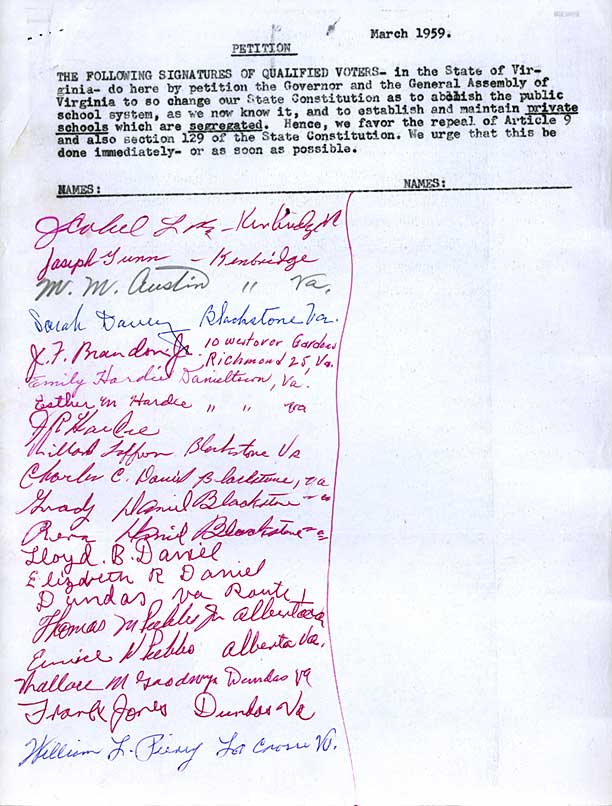 March 1959.
PETITION
THE FOLLOWING SIGNATURES OF QUALIFIED VOTERS- in the State of Vir-
ginia- do here by petition the Governor and the General Assembly of
Virginia to so change our State Constitution as to abolish the public
school system, as we now know it, and to establish and maintain private
schools which are segregated. Hence, we favor the repeal of Article 9
and also section 129 of the State Constitution. We urge that this be
done immediately- or as soon as possible.
NAMES: NAMES:
Kenbridge Va
Joseph Gunn - Kenbridge
M. M. Austin " Va.
Sarah Blackstone Va.
J. F. Brandon Jr. 10 Westover Gardens
Richmond 25, Va.
Emily Hardie Danieltown, Va.
Esther M Hardee " " Va
Blackstone Va
Charles C. Daniel Blackstone, Va
Grady Daniel Blackstone Va
Daniel Blackstone Va
Lloyd. B. Daniel
Elizabeth R Daniel
Dundas Va Route 1
Thomas M Peebles Jr Alberta Va
Eunice N Peebles Alberta Va.
Wallace M Goodwyn Dundas Va
Frank Jones Dundas Va
William L. La Crosse Va.